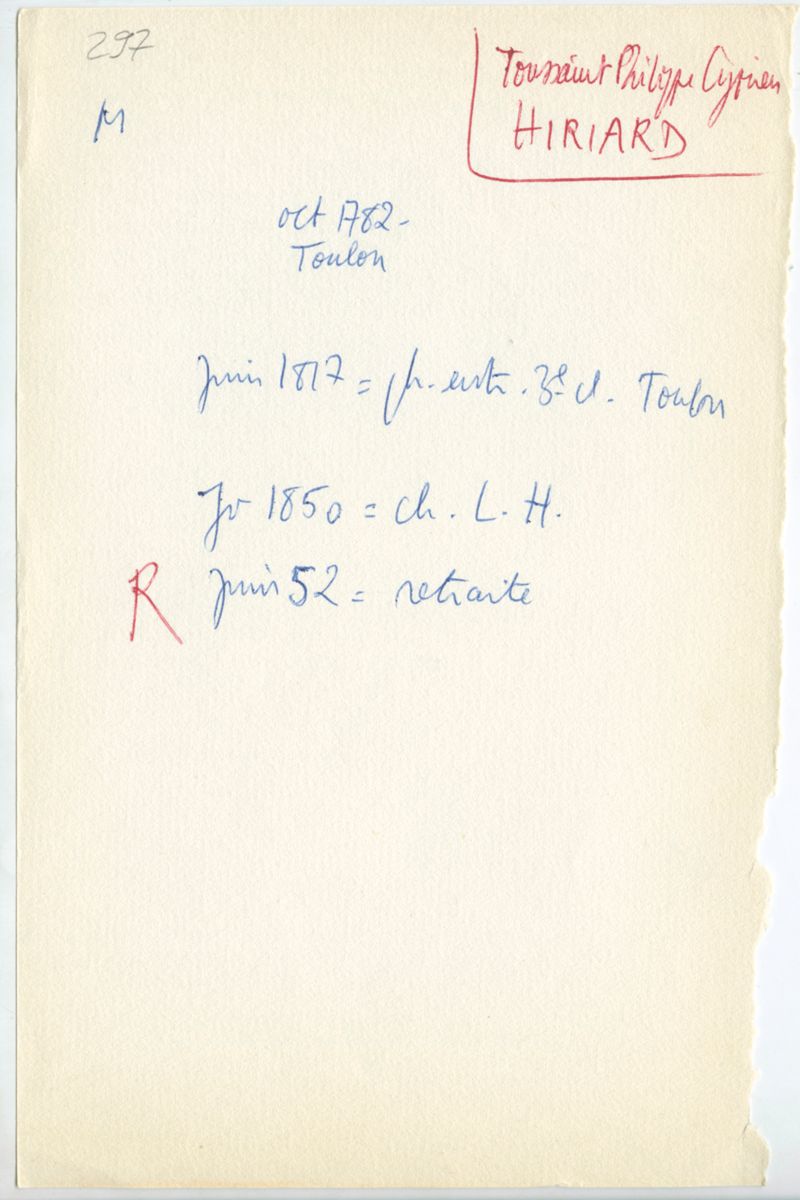 297
M
Toussaint Philippe Cyprien
HIRIARD
oct 1782-
Toulon
Juin 1817 = ph. entr. 3e cl. Toulon
Jv 1850 = ch. L. H.
R Juin 52 = retraite